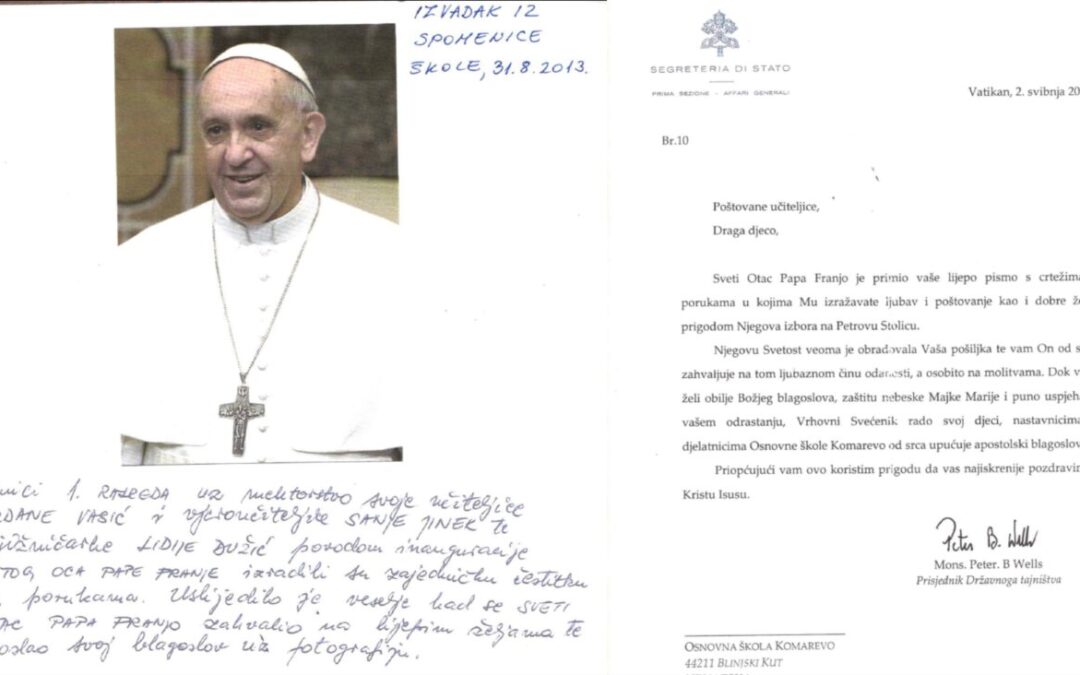 IZVADAK 12
SPOMENICE
ŠKOLE, 31.8.2013.
1. RAZREDA uz mentorstvo svoje učiteljice
VASIĆ i vjeroučiteljke SANJE JINEK te
LIDIJE DUŽIĆ povodom inauguracije
OCA PAPE FRANJE izradili su zajedničku čestitku
porukama. Uslijedilo je veselje kad se SVETI
PAPA FRANJO zahvalio na lijepim željama te
svoj blagoslov uz fotografiju.
SEGRETERIA DI STATO
PRIMA SEZIONE - AFFARI GENERALI
Vatikan, 2. svibnja 20
Br.10
Poštovane učiteljice,
Draga djeco,
Sveti Otac Papa Franjo je primio vaše lijepo pismo s crtežima
porukama u kojima Mu izražavate ljubav i poštovanje kao i dobre
prigodom Njegova izbora na Petrovu Stolicu.
Njegovu Svetost veoma je obradovala Vaša pošiljka te vam On od
zahvaljuje na tom ljubaznom činu odanosti, a osobito na molitvama. Dok
želi obilje Božjeg blagoslova, zaštitu nebeske Majke Marije i puno uspjeha
vašem odrastanju, Vrhovni Svećenik rado svoj djeci, nastavnicima
djelatnicima Osnovne škole Komarevo od srca upućuje apostolski blagoslov
Priopćujući vam ovo koristim prigodu da vas najiskrenije pozdravim
Kristu Isusu.
Peter B. Wells
Mons. Peter. B Wells
Prisjednik Državnoga tajništva
OSNOVNA ŠKOLA KOMAREVO
44211 BLINJSKI KUT